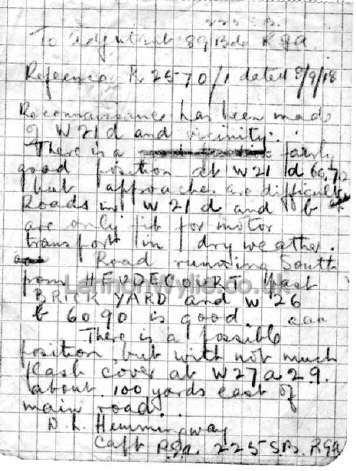 225 S.B.
To Adjutant 89 Bde RGA
Reference R. 2570/1 dated 8/9/18
Reconnaissance has been made
of W 21 d and vicinity.
There is a fairly
good position at W 21 d
but approaches are difficult
Roads in W 21 d and b
are only fit for motor
transport in dry weather.
Road running South
from HEUDECOURT past
BRICK YARD and W 26
b 60 90 is good
There is a possible
position but with not much
flash cover at W 27 a 2 9.
about 100 yards east of
main road.
Hemmingway
Capt RGA. 225 S.B. RGA